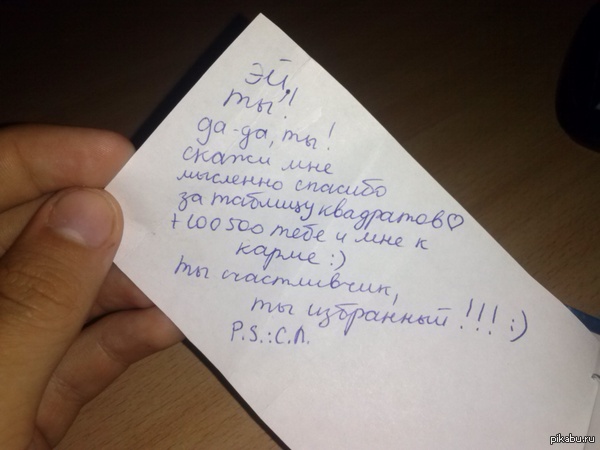 эй,
ты!!
да-да, ты!
скажи мне
мысленно спасибо
за таблицу квадратов♡
+100500 тебе и мне к
карме :)
ты счастливчик,
ты избранный!!! :)
P.S.: С.Л.
pikabu.ru